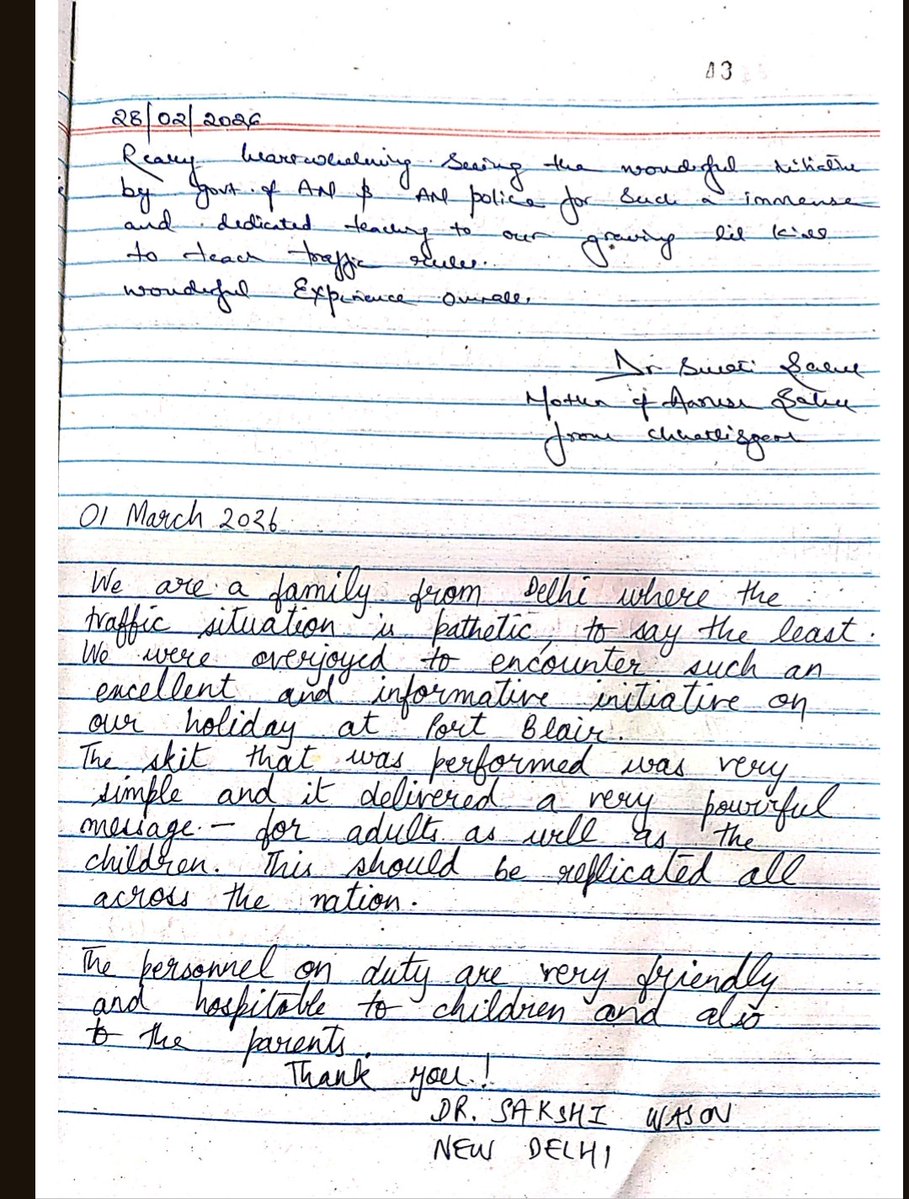 13
28/02/2026
Really heartwhelming seeing the wonderful initiative
by govt. of AN & AN police for such a immense
and dedicated teaching to our growing lil kids
to teach traffic rules.
wonderful Experience overall.
Dr Swati Sahu
Mother of Sahu
from Chhattisgarh
01 March 2026
We are a family from Delhi where the
traffic situation is pathetic, to say the least.
We were overjoyed to encounter such an
excellent and informative initiative on
our holiday at Port Blair.
The skit that was performed was very
simple and it delivered a very powerful
message – for adults as well as the
children. This should be replicated all
across the nation.
The personnel on duty are very friendly
and hospitable to children and also
to the parents.
Thank you!
DR. SAKSHI WASON
NEW DELHI